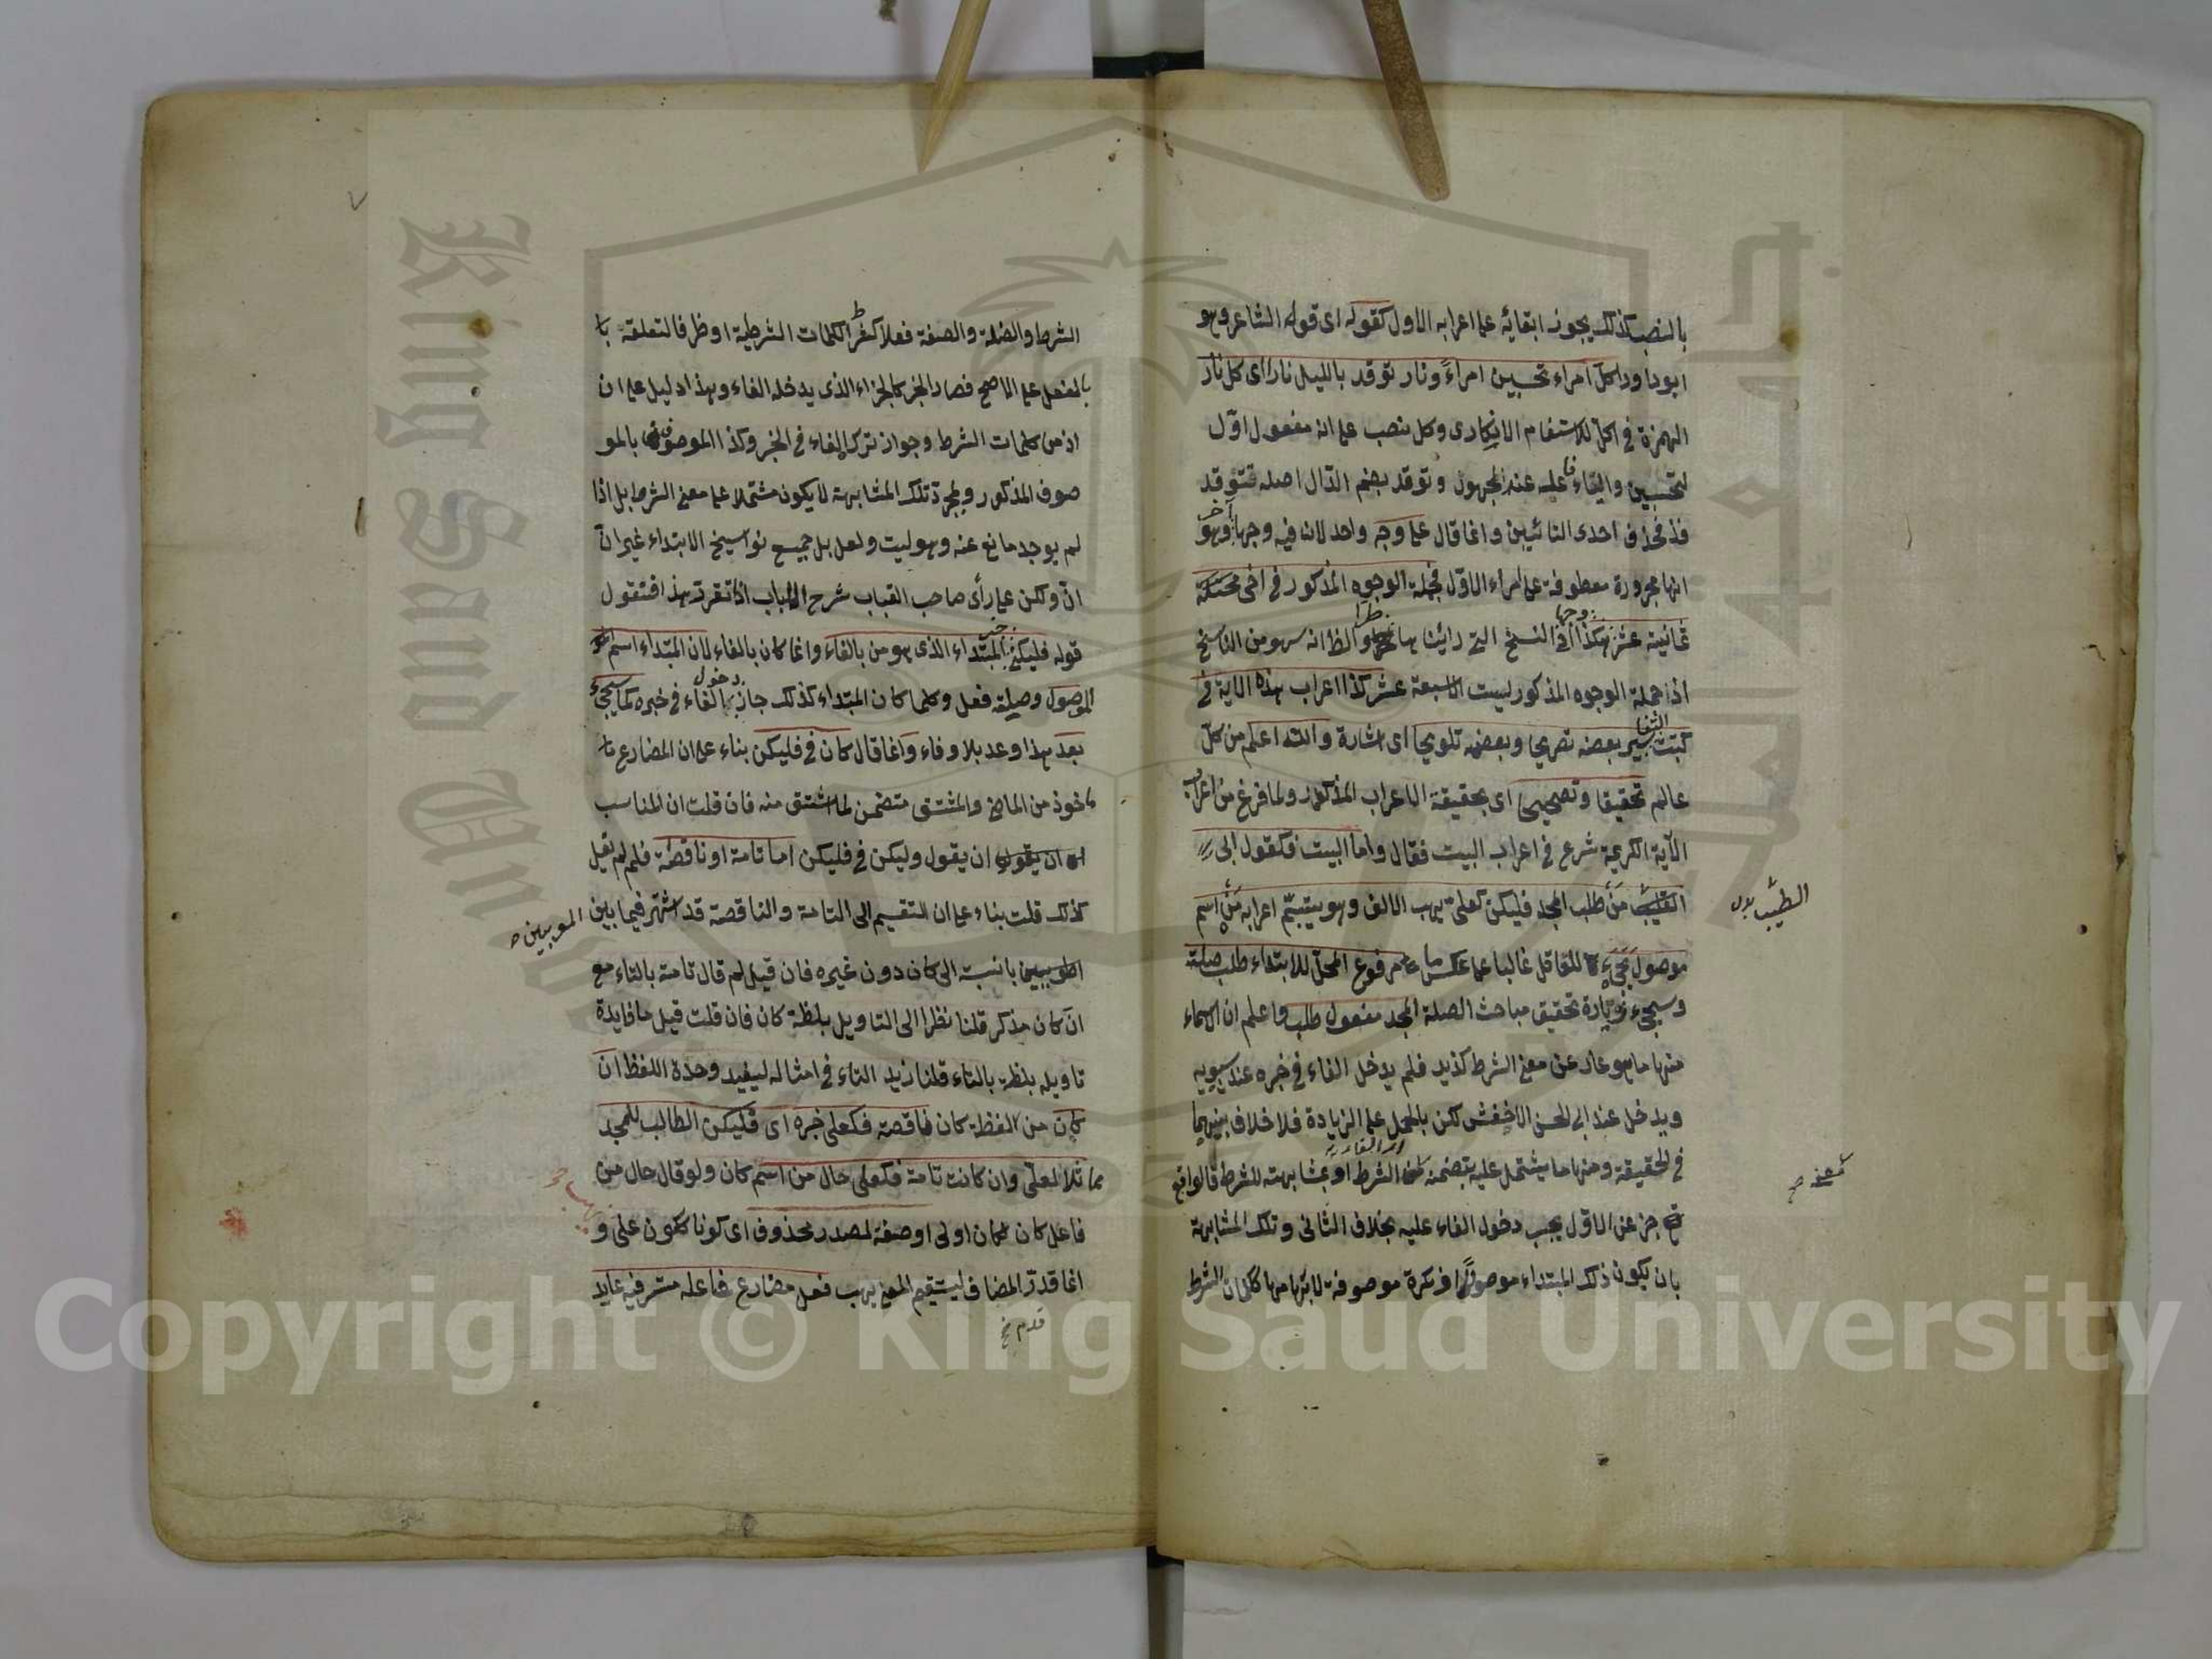 بالنصب كذلك يجوز ابقائه على اعرابه الاول كقوله اى قول الشاعر وهو
ابو داود اكل امراء تحسبين امراءً ونار توقد بالليل نارا اى كل نار
الهمزة فى اكل للاستفهام الانكارى وكل نصب على انه مفعول اوّل
لتحسبين والتاء فاعله عند الجمهور وتوقد بضم الدّال اصله تتوقد
فحذف احدى التائين وانما قال على وجه واحد لان فيه وجها آخر وهو
انها مجرورة معطوفة على امراء الاوّل فجملة الوجوه المذكور فى
ثمانية عشر وجها هكذا فى النسخ التى رأينا ها والظ انه سهو من الناسخ
اذ جملة الوجوه المذكور ليست الا سبعة عشر كذا اعراب هذه الاية فى
كتب التفاسير بعضه تصريحا وبعضه تلويحا اى اشارة والله اعلم من كل
عالم تحقيقا وتصحيحا اى بحقيقة الاعراب المذكور ولما فرغ من اعراب
الآية الكريمة شرع فى اعراب البيت فقال واما البيت فكقول ابى
الطيّب
مَنْ طلب المجد فليكن كعلىّ يهب الالف وهو يتبسّم اعرابه مَنْ اسم
موصول يجئ للعاقل غالبا على عكس ما مرفوع المحلّ للابتداء طلب صلته
وسيجئ زيادة تحقيق مباحث الصلة المجد مفعول طلب واعلم ان الاسماء
منها ما هو عار عن معنى الشرط كزيد فلم يدخل الفاء فى خبره عند سيبويه
ويدخل عند ابى الحسن الاخفش لكن بالحمل على الزيادة فلا خلاف بينهما
فى الحقيقة ومنها ما يشتمل عليه بتضمنه الشرط او بمشابهته للشرط فالواقع
معنى صح
خبر عن الاوّل يجب دخول الفاء عليه بخلاف الثانى وتلك المشابهة
بان يكون ذلك المبتداء موصولا او نكرة موصوفة لابهامها ككلمات الشرط
الشرط والصلة والصفة فعلا كفر الكلمات الشرطية او ظرفا لتعلقه با
بالفعل على الاصح فصار الخبر كالجزاء الذى يدخله الفاء وهذا دليل على ان
اذ من كلمات الشرط وجواز ترك الفاء فى الخبر وكذا الموصوف بالمو
صوف المذكور وبمجرد تلك المشابهة لا يكون مشتملا على معنى الشرط بل اذا
لم يوجد مانع عنه وهو ليت ولعل بل جميع نواسخ الابتداء غير انّ
انّ ولكن على رأى صاحب العباب شرح اللباب اذا تقرر هذا فنقول
قوله فليكن خبر المبتداء الذى هو من بالفاء وانما كان بالفاء لان المبتداء اسم
الموصول وصلته فعل وكلما كان المبتداء كذلك جاز دخول الفاء فى خبره كما سيجئ
بعد هذا وعد بلا وفاء وانما قال كان فى فليكن بناء على ان المضارع ما
ماخوذ من الماضى والمشتق متضمن لما اشتق منه فان قلت ان المناسب
ان يقول وليكن فى فليكن اما تامة او ناقصة فلم لم يقل
كذلك قلت بناء على ان التقسيم الى التامة والناقصة قد اشتهر فيما بين المعربين
بالنسبة الى كان دون غيره فان قيل لم قال تامة بالتاء مع
انّ كان مذكر قلنا نظرا الى التاويل بلفظة كان فان قلت قيل ما فايدة
تاويله بلفظة بالتاء قلنا زيد التاء فى امثاله ليفيد وحدة اللفظ ان
كان من الفظة كان ناقصة فكعلى خبره اى فليكن الطالب للمجد
مماثلا لعلىّ وان كانت تامة فكعلى حال من اسم كان ولو قال حال من
فاعل كان لكان اولى او صفة لمصدر محذوف اى كونا ككون على و
انما قدّر المضاف ليستقيم المعنى يهب فعل مضارع فاعله مستر فيه عايد
Copyright © King Saud University